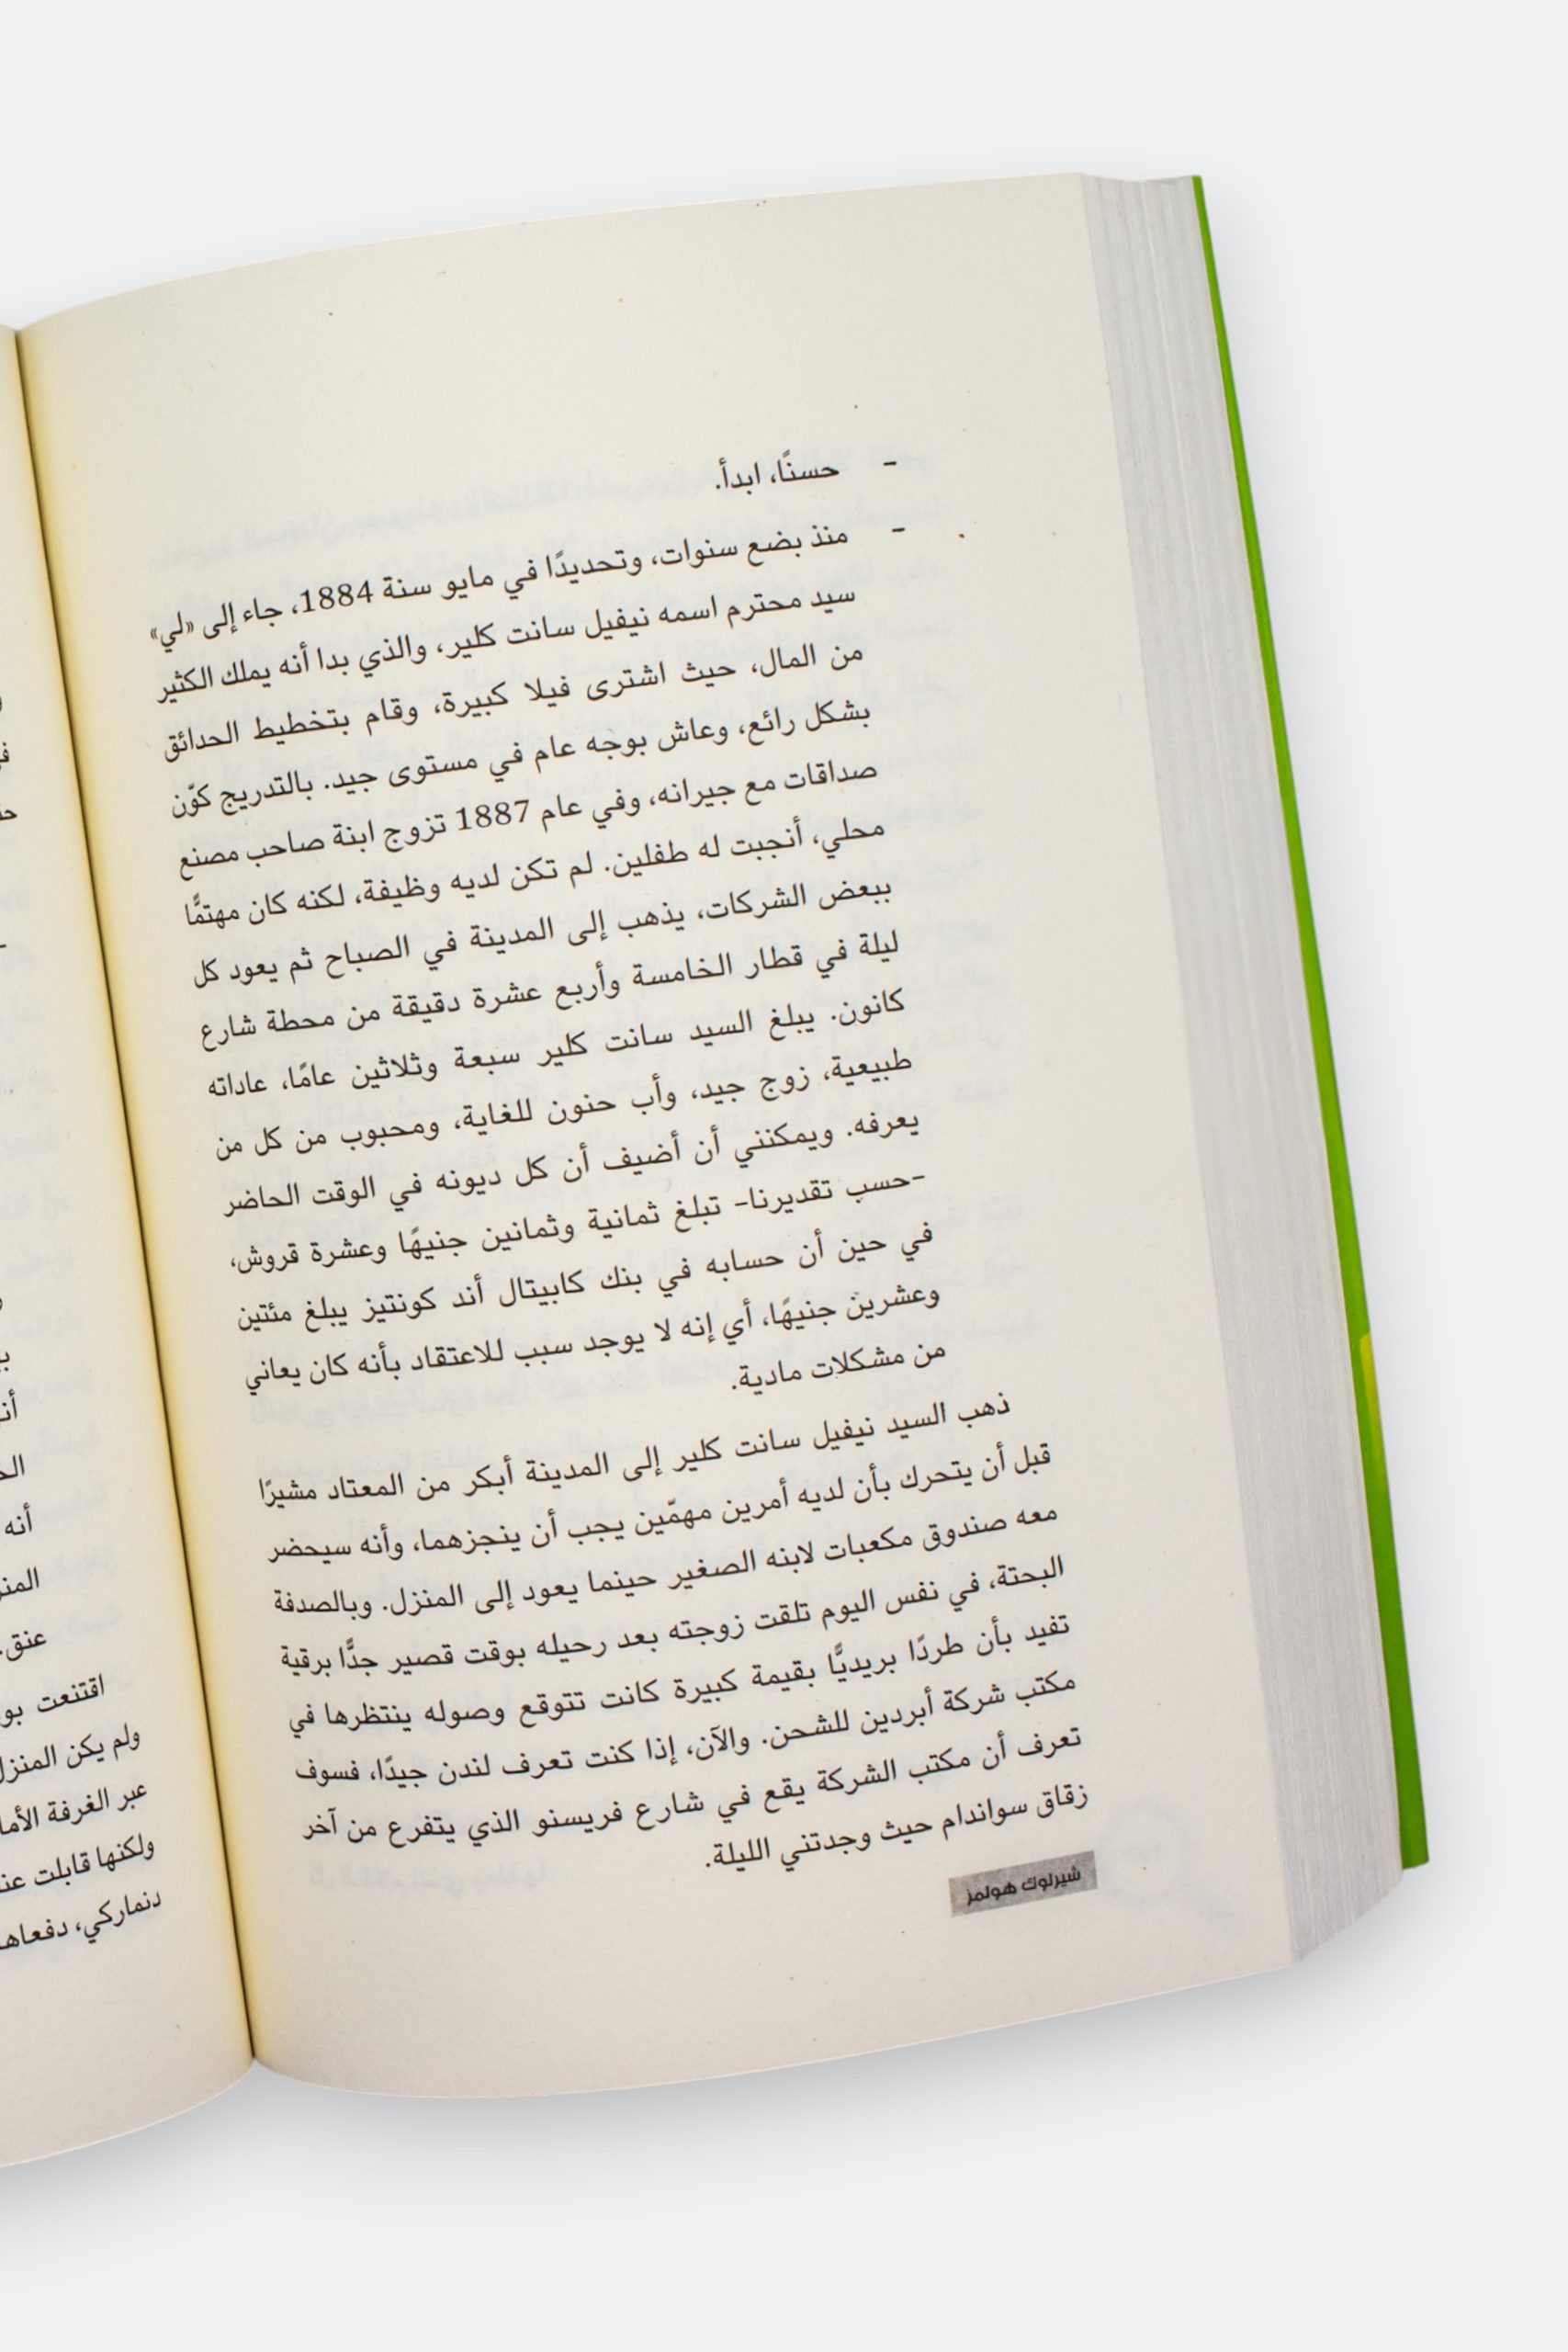 - حسنًا، ابدأ.
- منذ بضع سنوات، وتحديدًا في مايو سنة 1884، جاء إلى «لي»
سيد محترم اسمه نيفيل سانت كلير، والذي بدا أنه يملك الكثير
من المال، حيث اشترى فيلا كبيرة، وقام بتخطيط الحدائق
بشكل رائع، وعاش بوجه عام في مستوى جيد. بالتدريج كوّن
صداقات مع جيرانه، وفي عام 1887 تزوج ابنة صاحب مصنع
محلي، أنجبت له طفلين. لم تكن لديه وظيفة، لكنه كان مهتمًّا
ببعض الشركات، يذهب إلى المدينة في الصباح ثم يعود كل
ليلة في قطار الخامسة وأربع عشرة دقيقة من محطة شارع
كانون. يبلغ السيد سانت كلير سبعة وثلاثين عامًا، عاداته
طبيعية، زوج جيد، وأب حنون للغاية، ومحبوب من كل من
يعرفه. ويمكنني أن أضيف أن كل ديونه في الوقت الحاضر
-حسب تقديرنا- تبلغ ثمانية وثمانين جنيهًا وعشرة قروش،
في حين أن حسابه في بنك كابيتال أند كونتيز يبلغ مئتين
وعشرين جنيهًا، أي إنه لا يوجد سبب للاعتقاد بأنه كان يعاني
من مشكلات مادية.
ذهب السيد نيفيل سانت كلير إلى المدينة أبكر من المعتاد مشيرًا
قبل أن يتحرك بأن لديه أمرين مهمّين يجب أن ينجزهما، وأنه سيحضر
معه صندوق مكعبات لابنه الصغير حينما يعود إلى المنزل. وبالصدفة
البحتة، في نفس اليوم تلقت زوجته بعد رحيله بوقت قصير جدًّا برقية
تفيد بأن طردًا بريديًّا بقيمة كبيرة كانت تتوقع وصوله ينتظرها في
مكتب شركة أبردين للشحن. والآن، إذا كنت تعرف لندن جيدًا، فسوف
تعرف أن مكتب الشركة يقع في شارع فريسنو الذي يتفرع من آخر
زقاق سواندام حيث وجدتني الليلة.
شيرلوك هولمز
أنه
عنق.
اقتنعت
ولم يكن المنزل
عبر الغرفة
ولكنها قابلت
دنماركي،